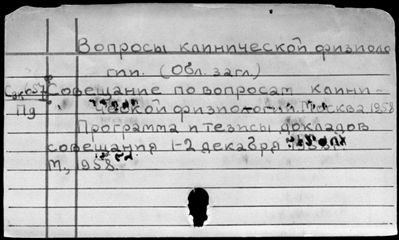 Вопросы клинической физиоло
гии. (Обл. загл.)
Совещание по вопросам клини-
ческой физиологии. Москва 1958
Пд
Программа и тезисы докладов
совещания 1-2 декабря
М., 1958.